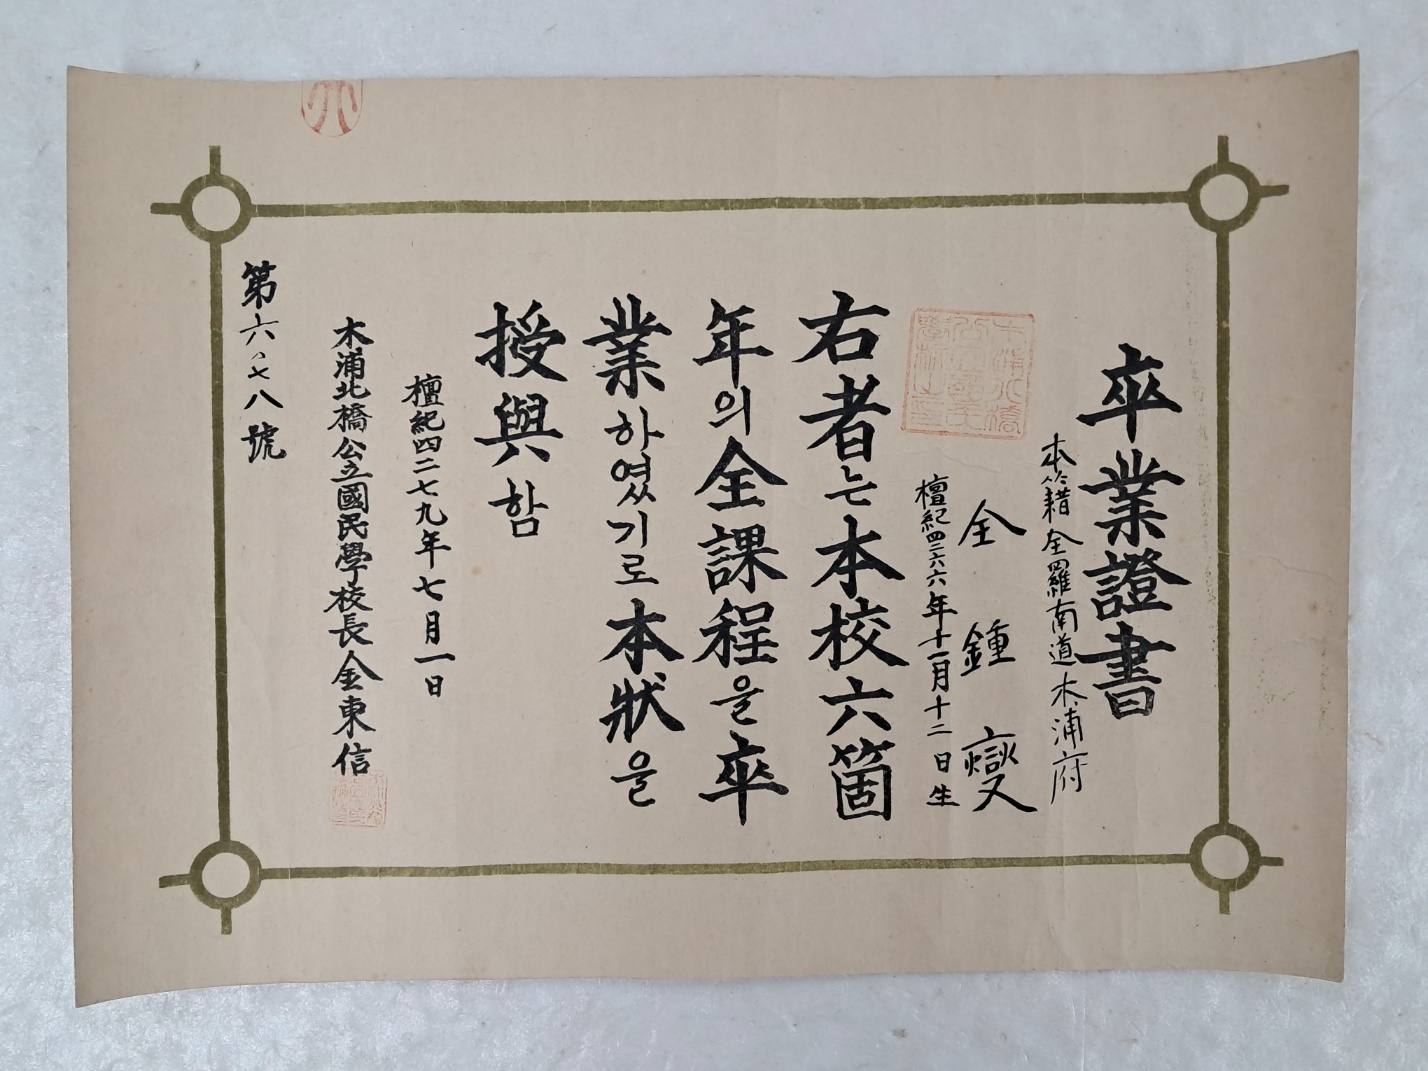 卒業證書
本籍 全羅南道 木浦府
全 鍾 燮
檀紀四二六六年十一月十二日生
右者는本校六箇
年의全課程을卒
業하였기로本狀을
授與함
檀紀四二七九年七月一日
木浦北橋公立國民學校長金東信
第六八七八號